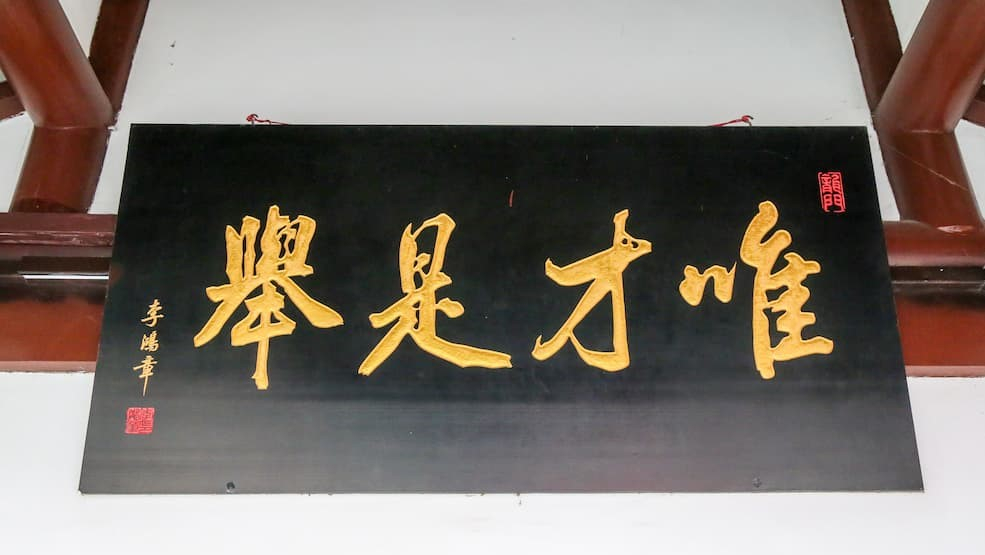 唯才是舉
李鴻章